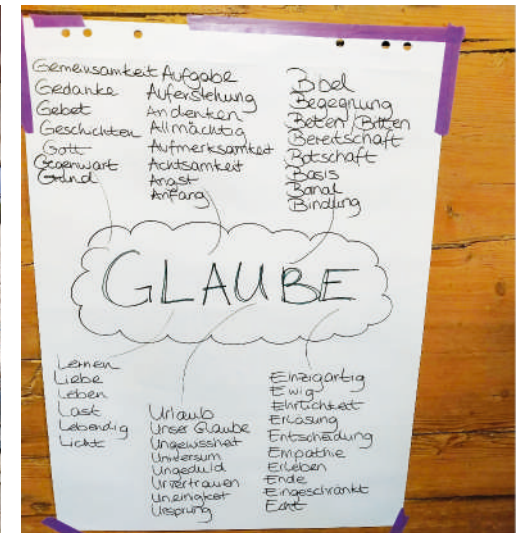 Gemeinsamkeit
Gedanke
Gebet
Geschichten
Gott
Gegenwart
Grund
Aufgabe
Auferstehung
Andenken
Allmächtig
Aufmerksamkeit
Achtsamkeit
Angst
Anfang
Bibel
Begegnung
Beten / Bitten
Bereitschaft
Botschaft
Basis
Banal
Bindung
GLAUBE
Lernen
Liebe
Leben
Last
Lebendig
Licht
Urlaub
Unser Glaube
Ungewissheit
Universum
Ungeduld
Urvertrauen
Uneinigkeit
Ursprung
Einzigartig
Ewig
Ehrlichkeit
Erlösung
Entscheidung
Empathie
Erleben
Ende
Eingeschränkt
Echt